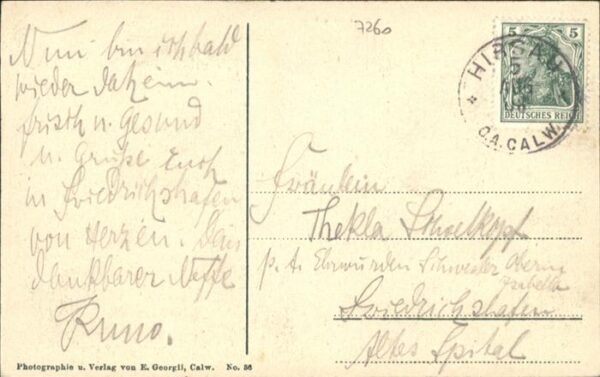 7260
Nun bin ich bald
wieder daheim
frisch u. gesund
u. Grüße Euch
in Friedrichshafen
von Herzen. Dein
dankbarer Neffe
Kuno.
5 5
DEUTSCHES REICH
HIRSAU
5
AUG
O.A. CALW.
Fräulein
Thekla Schoelkopf
p. A. Ehrwürden Schwester Oberin
Isabella
Friedrichshafen
Altes Spital
Photographie u. Verlag von E. Georgii, Calw. No. 56